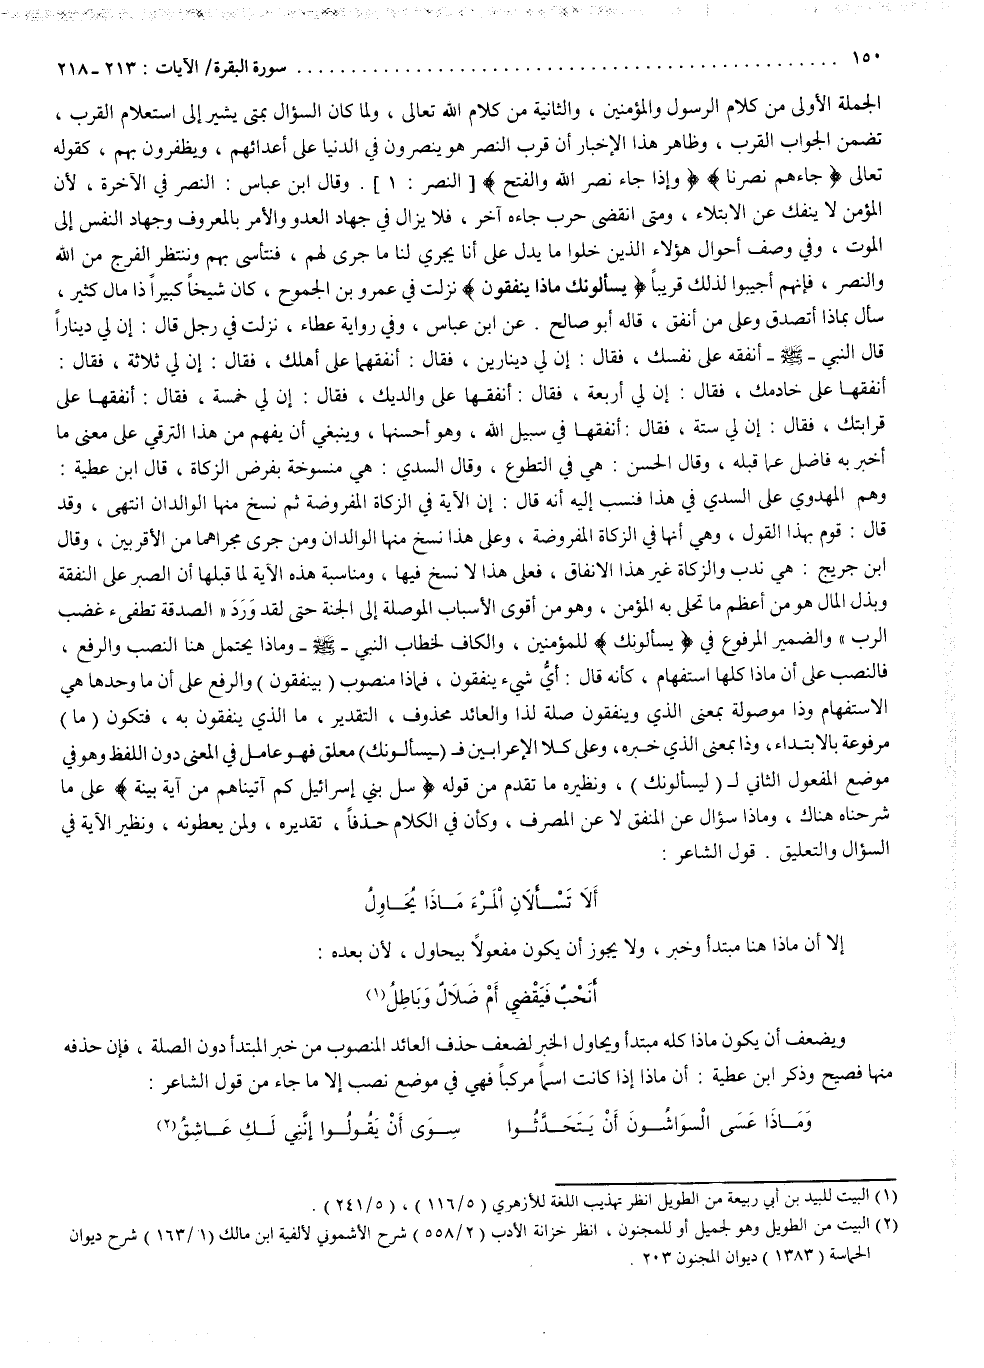 ١٥٠ ............................................ سورة البقرة/ الآيات : ٢١٣ - ٢١٨
الجملة الأولى من كلام الرسول والمؤمنين ، والثانية من كلام الله تعالى ، ولما كان السؤال بمتى يشير إلى استعلام القرب ،
تضمن الجواب القرب ، وظاهر هذا الإخبار أن قرب النصر هو ينصرون في الدنيا على أعدائهم ، ويظفرون بهم ، كقوله
تعالى ﴿ جاءهم نصرنا ﴾ ﴿ وإذا جاء نصر الله والفتح ﴾ [ النصر : ١ ] . وقال ابن عباس : النصر في الآخرة ، لأن
المؤمن لا ينفك عن الابتلاء ، ومتى انقضى حرب جاءه آخر ، فلا يزال في جهاد العدو والأمر بالمعروف وجهاد النفس إلى
الموت ، وفي وصف أحوال هؤلاء الذين خلوا ما يدل على أنا يجري لنا ما جرى لهم ، فنتأسى بهم وننتظر الفرج من الله
والنصر ، فإنهم أجيبوا لذلك قريباً ﴿ يسألونك ماذا ينفقون ﴾ نزلت في عمرو بن الجموح ، كان شيخاً كبيراً ذا مال كثير ،
سأل بماذا أتصدق وعلى من أنفق ، قاله أبو صالح . عن ابن عباس ، وفي رواية عطاء ، نزلت في رجل قال : إن لي ديناراً
قال النبي - ﷺ - أنفقه على نفسك ، فقال : إن لي دينارين ، فقال : أنفقهما على أهلك ، فقال : إن لي ثلاثة ، فقال :
أنفقها على خادمك ، فقال : إن لي أربعة ، فقال : أنفقها على والديك ، فقال : إن لي خمسة ، فقال : أنفقها على
قرابتك ، فقال : إن لي ستة ، فقال : أنفقها في سبيل الله ، وهو أحسنها ، وينبغي أن يفهم من هذا الترقي على معنى ما
أخبر به فاضل عما قبله ، وقال الحسن : هي في التطوع ، وقال السدي : هي منسوخة بفرض الزكاة ، قال ابن عطية :
وهم المهدوي على السدي في هذا فنسب إليه أنه قال : إن الآية في الزكاة المفروضة ثم نسخ منها الوالدان انتهى ، وقد
قال : قوم بهذا القول ، وهي أنها في الزكاة المفروضة ، وعلى هذا نسخ منها الوالدان ومن جرى مجراهما من الأقربين ، وقال
ابن جريج : هي ندب والزكاة غير هذا الانفاق ، فعلى هذا لا نسخ فيها ، ومناسبة هذه الآية لما قبلها أن الصبر على النفقة
وبذل المال هو من أعظم ما تحلى به المؤمن ، وهو من أقوى الأسباب الموصلة إلى الجنة حتى لقد وَرَدَ « الصدقة تطفىء غضب
الرب » والضمير المرفوع في ﴿ يسألونك ﴾ للمؤمنين ، والكاف لخطاب النبي - ﷺ - وماذا يحتمل هنا النصب والرفع ،
فالنصب على أن ماذا كلها استفهام ، كأنه قال : أيُّ شيء ينفقون ، فماذا منصوب ( بينفقون ) والرفع على أن ما وحدها هي
الاستفهام وذا موصولة بمعنى الذي وينفقون صلة لذا والعائد محذوف ، التقدير ، ما الذي ينفقون به ، فتكون ( ما )
مرفوعة بالابتداء، وذا بمعنى الذي خبره، وعلى كلا الإعرابين فـ (يسألونك) معلق فهو عامل في المعنى دون اللفظ وهو في
موضع المفعول الثاني لـ ( ليسألونك ) ، ونظيره ما تقدم من قوله ﴿ سل بني إسرائيل كم آتيناهم من آية بينة ﴾ على ما
شرحناه هناك ، وماذا سؤال عن المنفق لا عن المصرف ، وكأن في الكلام حذفاً ، تقديره ، ولمن يعطونه ، ونظير الآية في
السؤال والتعليق . قول الشاعر :
أَلَا تَسْأَلَانِ الْمَرْءَ مَاذَا يُحَاوِلُ
إلا أن ماذا هنا مبتدأ وخبر ، ولا يجوز أن يكون مفعولاً بيحاول ، لأن بعده :
أَنَحْبٌ فَيَقْضِي أَمْ ضَلَالٌ وَبَاطِلُ(١)
ويضعف أن يكون ماذا كله مبتدأ ويحاول الخبر لضعف حذف العائد المنصوب من خبر المبتدأ دون الصلة ، فإن حذفه
منها فصيح وذكر ابن عطية : أن ماذا إذا كانت اسماً مركباً فهي في موضع نصب إلا ما جاء من قول الشاعر :
وَمَاذَا عَسَى الْوَاشُونَ أَنْ يَتَحَدَّثُوا سِوَى أَنْ يَقُولُوا إِنَّنِي لَكِ عَاشِقُ(٢)
(١) البيت للبيد بن أبي ربيعة من الطويل انظر تهذيب اللغة للأزهري ( ١١٦/٥ ) ، ( ٢٤١/٥ ) .
(٢) البيت من الطويل وهو لجميل أو للمجنون ، انظر خزانة الأدب ( ٥٥٨/٢ ) شرح الأشموني لألفية ابن مالك (١٦٣/١ ) شرح ديوان
الحماسة ( ١٣٨٣ ) ديوان المجنون ٢٠٣ .